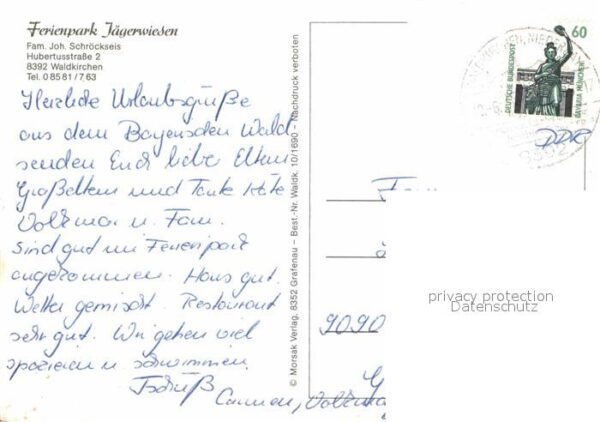 Ferienpark Jägerwiesen
Fam. Joh. Schröckseis
Hubertusstraße 2
8392 Waldkirchen
Tel. 0 85 81 / 7 63
Herzliche Urlaubsgrüße
aus dem Bayerischen Wald
senden Euch liebe Eltern
Großeltern und Tante Käte
Volkmar u. Fam.
Sind gut im Ferienpark
angekommen. Haus gut.
Wetter gemischt. Restaurant
sehr gut. Wir gehen viel
spazieren u. schwimmen.
Tschüß
Carmen, Volkmar
© Morsak Verlag, 8352 Grafenau – Best.-Nr. Waldk. 10/1690 – Nachdruck verboten
60
DEUTSCHE BUNDESPOST
BAVARIA MÜNCHEN
DDR
9090
privacy protection
Datenschutz